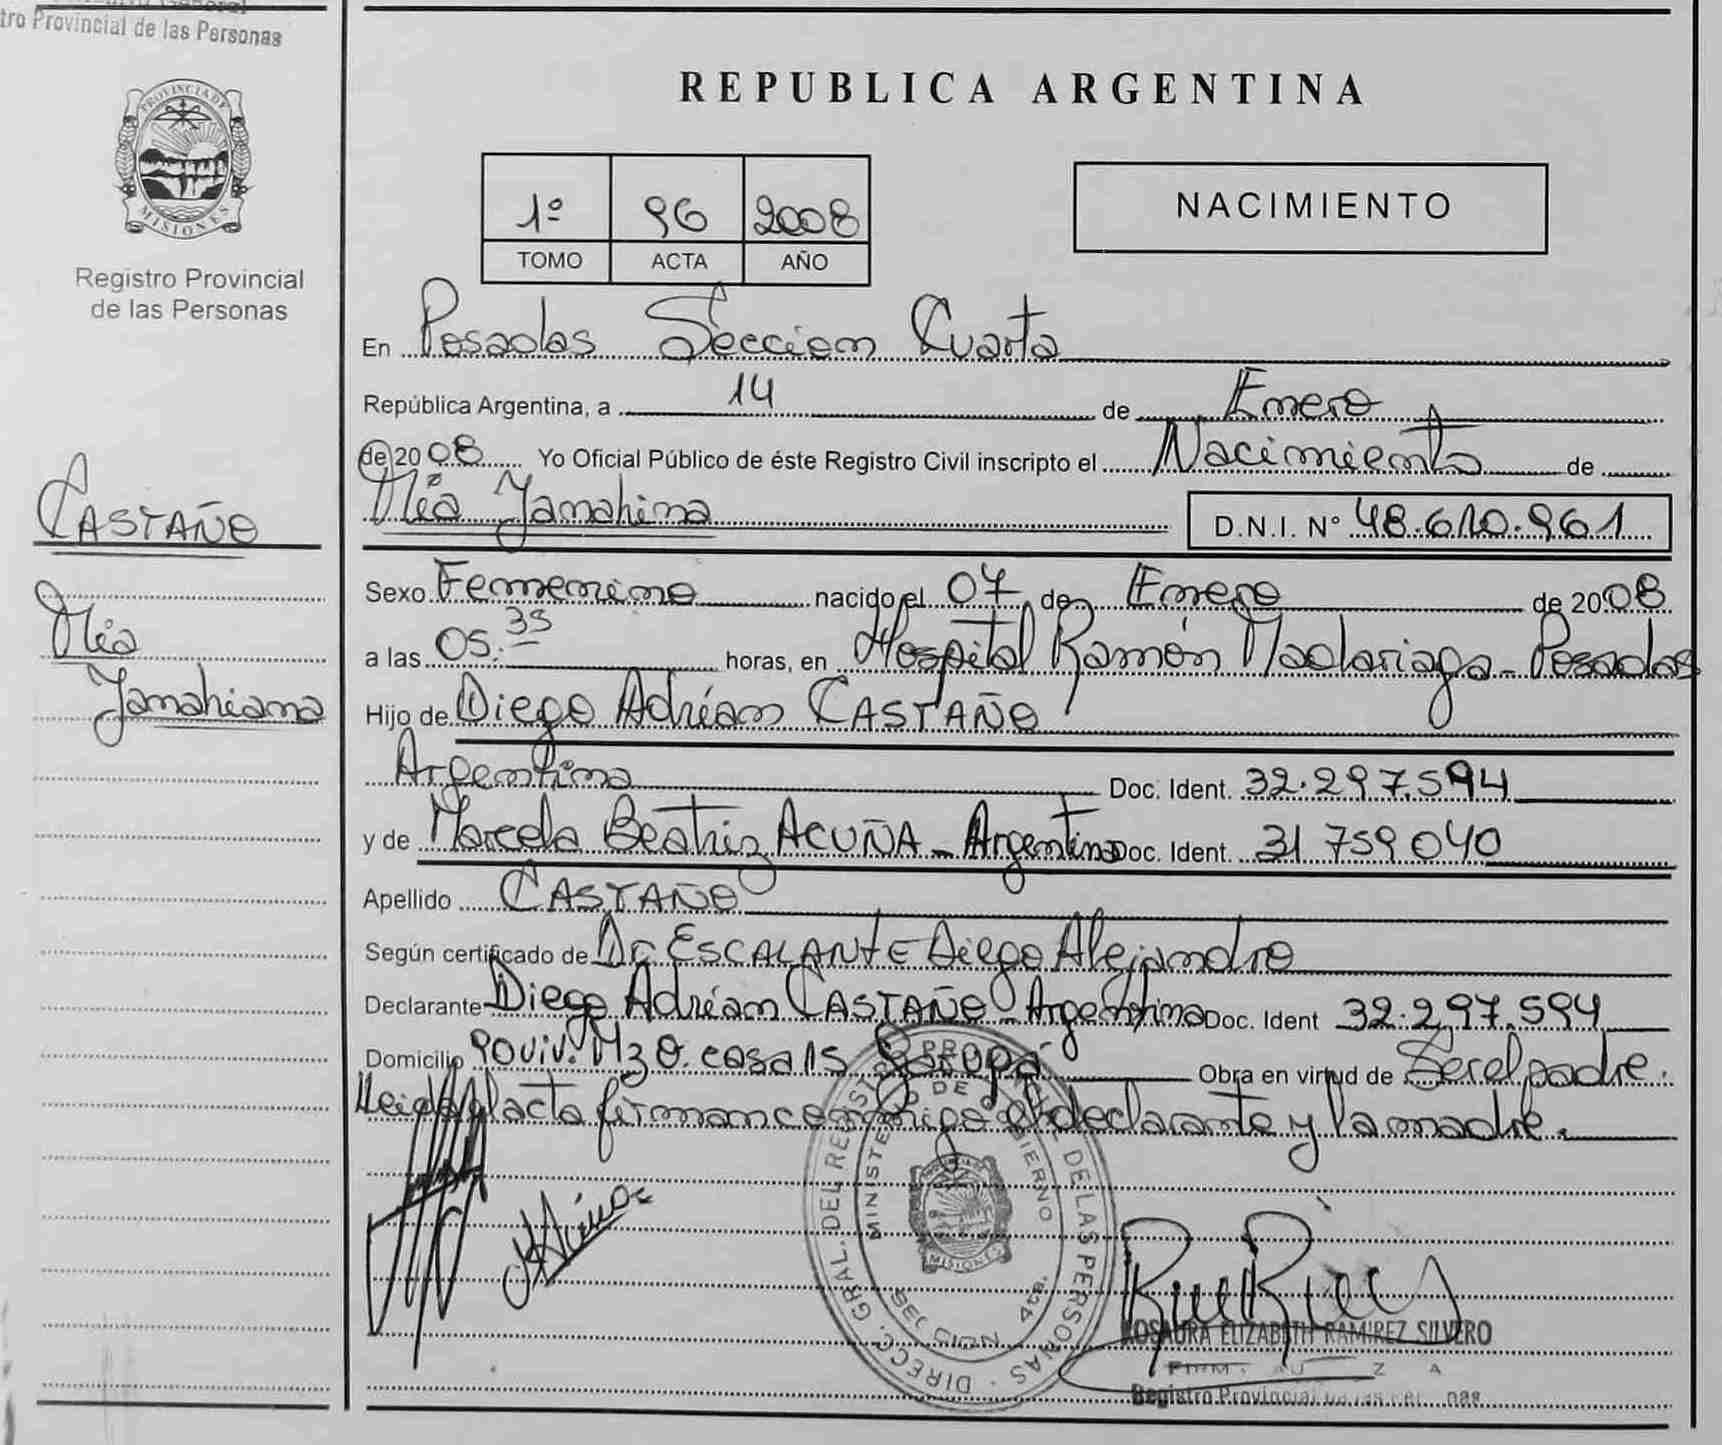 tro Provincial de las Personas
PROVINCIA DE
MISIONES
Registro Provincial
de las Personas
CASTAÑO
Mía
Jamahiana
REPUBLICA ARGENTINA
1º 96 2008
TOMO ACTA AÑO
NACIMIENTO
En Posadas Seccion Cuarta
República Argentina, a 14 de Enero
de 2008 Yo Oficial Público de éste Registro Civil inscripto el Nacimiento de
Mía Jamahina D.N.I. Nº 48.610.961
Sexo Femenino nacido el 07 de Enero de 2008
a las 05:35 horas, en Hospital Ramón Madariaga - Posadas
Hijo de Diego Adrián CASTAÑO
Argentina Doc. Ident. 32.297.594
y de Marcela Beatriz ACUÑA - Argentina Doc. Ident. 31 759 040
Apellido CASTAÑO
Según certificado de Dr ESCALANTE Diego Alejandro
Declarante Diego Adrián CASTAÑO - Argentina Doc. Ident 32.297.594
Domicilio 90 viv. Mz O. casa 15 Obra en virtud de Ser el padre.
Leida el acta firman conmigo el declarante y la madre.
DIRECC. GRAL. DEL REGISTRO DE LAS PERSONAS
MISIONES
ROSAURA ELIZABETH RAMIREZ SILVERO
Registro Provincial